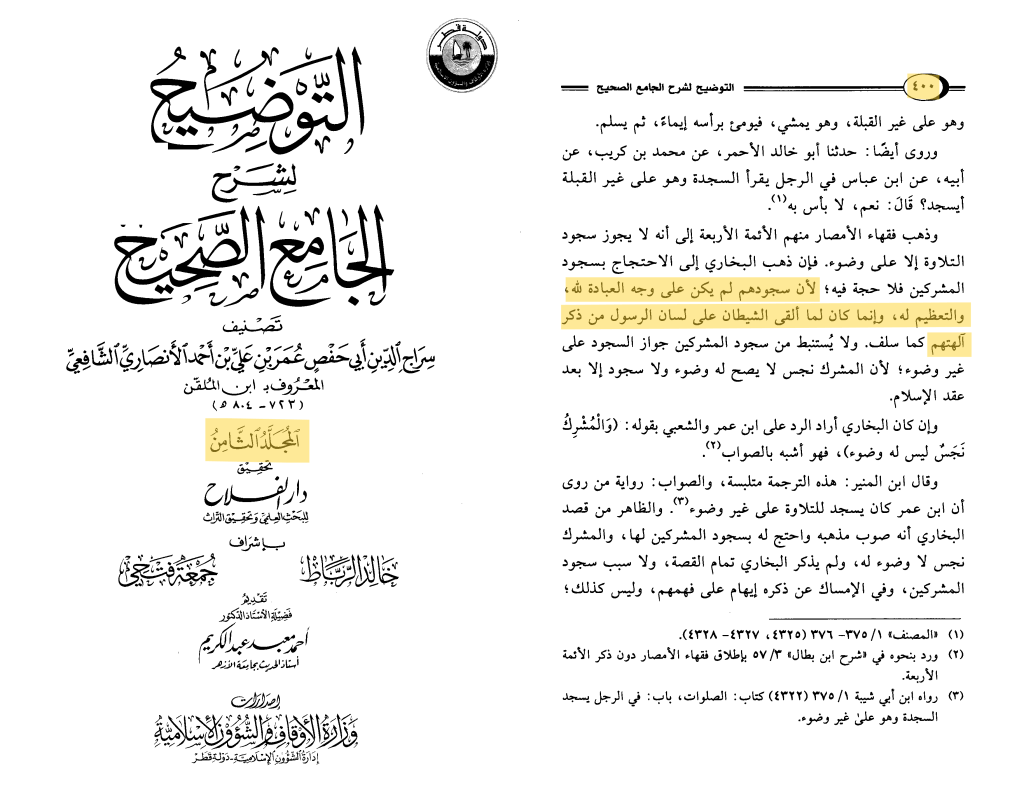 دولة قطر
التَّوضِيحُ
لِشَرْحِ
الجَامِعِ الصَّحِيحِ
تَصْنِيفُ
سِرَاجِ الدِّينِ أَبي حَفْصٍ عُمَرَ بْنِ عَلِيِّ بْنِ أَحْمَدَ الأَنْصَارِيِّ الشَّافِعِيِّ
المَعْرُوفِ بـ ابن المُلَقِّن
(٧٢٣ - ٨٠٤ هـ)
المُجَلَّدُ الثَّامِنُ
تحقيق
دار الفلاح
للبحث العلمي وتحقيق التراث
بإشراف
خالد الرباط
جمعة فتحي
تقديم
فضيلة الأستاذ الدكتور
أحمد معبد عبد الكريم
أستاذ الحديث بجامعة الأزهر
إصدارات
وزارة الأوقاف والشؤون الإسلامية
إدارة الشؤون الإسلامية - دولة قطر
٤٠٠
التوضيح لشرح الجامع الصحيح
وهو على غير القبلة، وهو يمشي، فيومئ برأسه إيماءً، ثم يسلم.
وروى أيضًا: حدثنا أبو خالد الأحمر، عن محمد بن كريب، عن
أبيه، عن ابن عباس في الرجل يقرأ السجدة وهو على غير القبلة
أيسجد؟ قَالَ: نعم، لا بأس به(١).
وذهب فقهاء الأمصار منهم الأئمة الأربعة إلى أنه لا يجوز سجود
التلاوة إلا على وضوء. فإن ذهب البخاري إلى الاحتجاج بسجود
المشركين فلا حجة فيه؛ لأن سجودهم لم يكن على وجه العبادة لله،
والتعظيم له، وإنما كان لما ألقى الشيطان على لسان الرسول من ذكر
آلهتهم كما سلف. ولا يُستنبط من سجود المشركين جواز السجود على
غير وضوء؛ لأن المشرك نجس لا يصح له وضوء ولا سجود إلا بعد
عقد الإسلام.
وإن كان البخاري أراد الرد على ابن عمر والشعبي بقوله: (وَالْمُشْرِكُ
نَجَسٌ ليس له وضوء)، فهو أشبه بالصواب(٢).
وقال ابن المنير: هذه الترجمة متلبسة، والصواب: رواية من روى
أن ابن عمر كان يسجد للتلاوة على غير وضوء(٣). والظاهر من قصد
البخاري أنه صوب مذهبه واحتج له بسجود المشركين لها، والمشرك
نجس لا وضوء له، ولم يذكر البخاري تمام القصة، ولا سبب سجود
المشركين، وفي الإمساك عن ذكره إيهام على فهمهم، وليس كذلك؛
(١) «المصنف» ١/ ٣٧٥- ٣٧٦ (٤٣٢٥، ٤٣٢٧- ٤٣٢٨).
(٢) ورد بنحوه في «شرح ابن بطال» ٣/ ٥٧ بإطلاق فقهاء الأمصار دون ذكر الأئمة
الأربعة.
(٣) رواه ابن أبي شيبة ١/ ٣٧٥ (٤٣٢٢) كتاب: الصلوات، باب: في الرجل يسجد
السجدة وهو على غير وضوء.